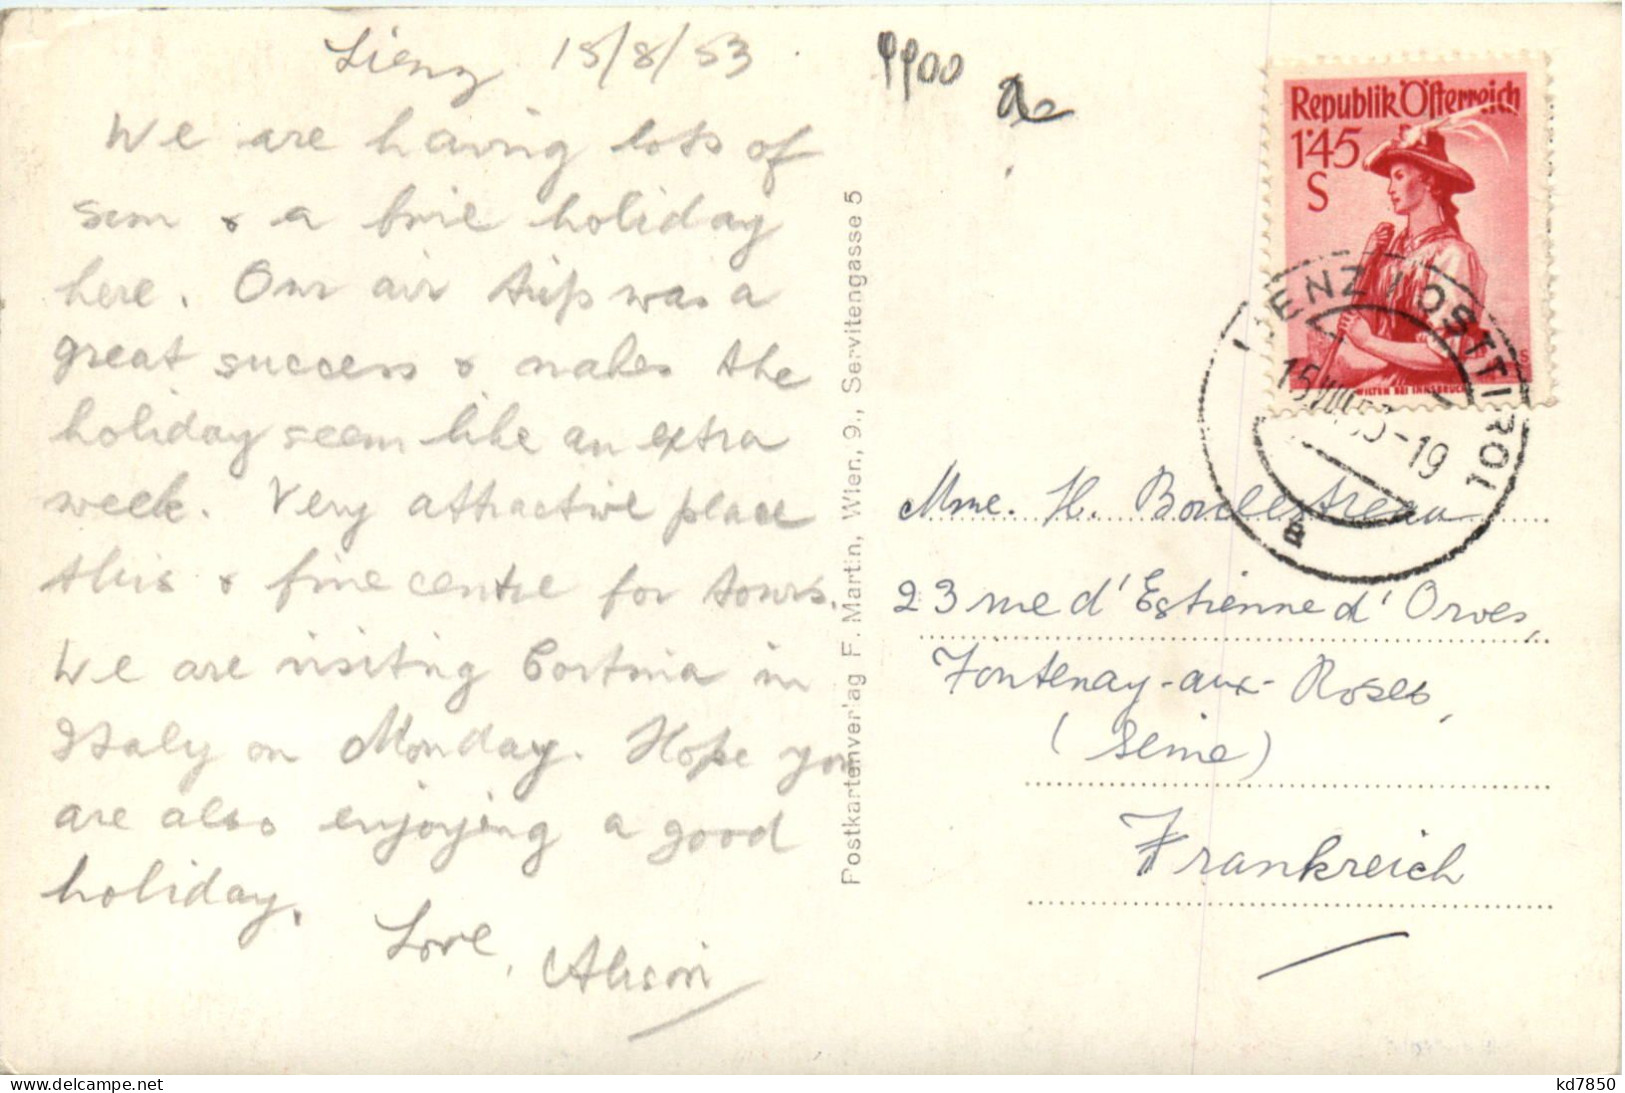 Lienz 15/8/53
We are having lots of
sun & a fine holiday
here. Our air trip was a
great success & makes the
holiday seem like an extra
week. Very attractive place
this & fine centre for tours.
We are visiting Cortina in
Italy on Monday. Hope you
are also enjoying a good
holiday.
Love, Alison
Postkartenverlag F. Martin, Wien, 9., Servitengasse 5
9900
Republik Österreich
1·45
S
WILTEN BEI INNSBRUCK
LIENZ / OSTTIROL
15.VIII.53-19
a
Mme. H.
23 rue d'Estienne d'Orves,
Fontenay-aux-Roses,
(Seine)
Frankreich
delcampe.net
kd7850